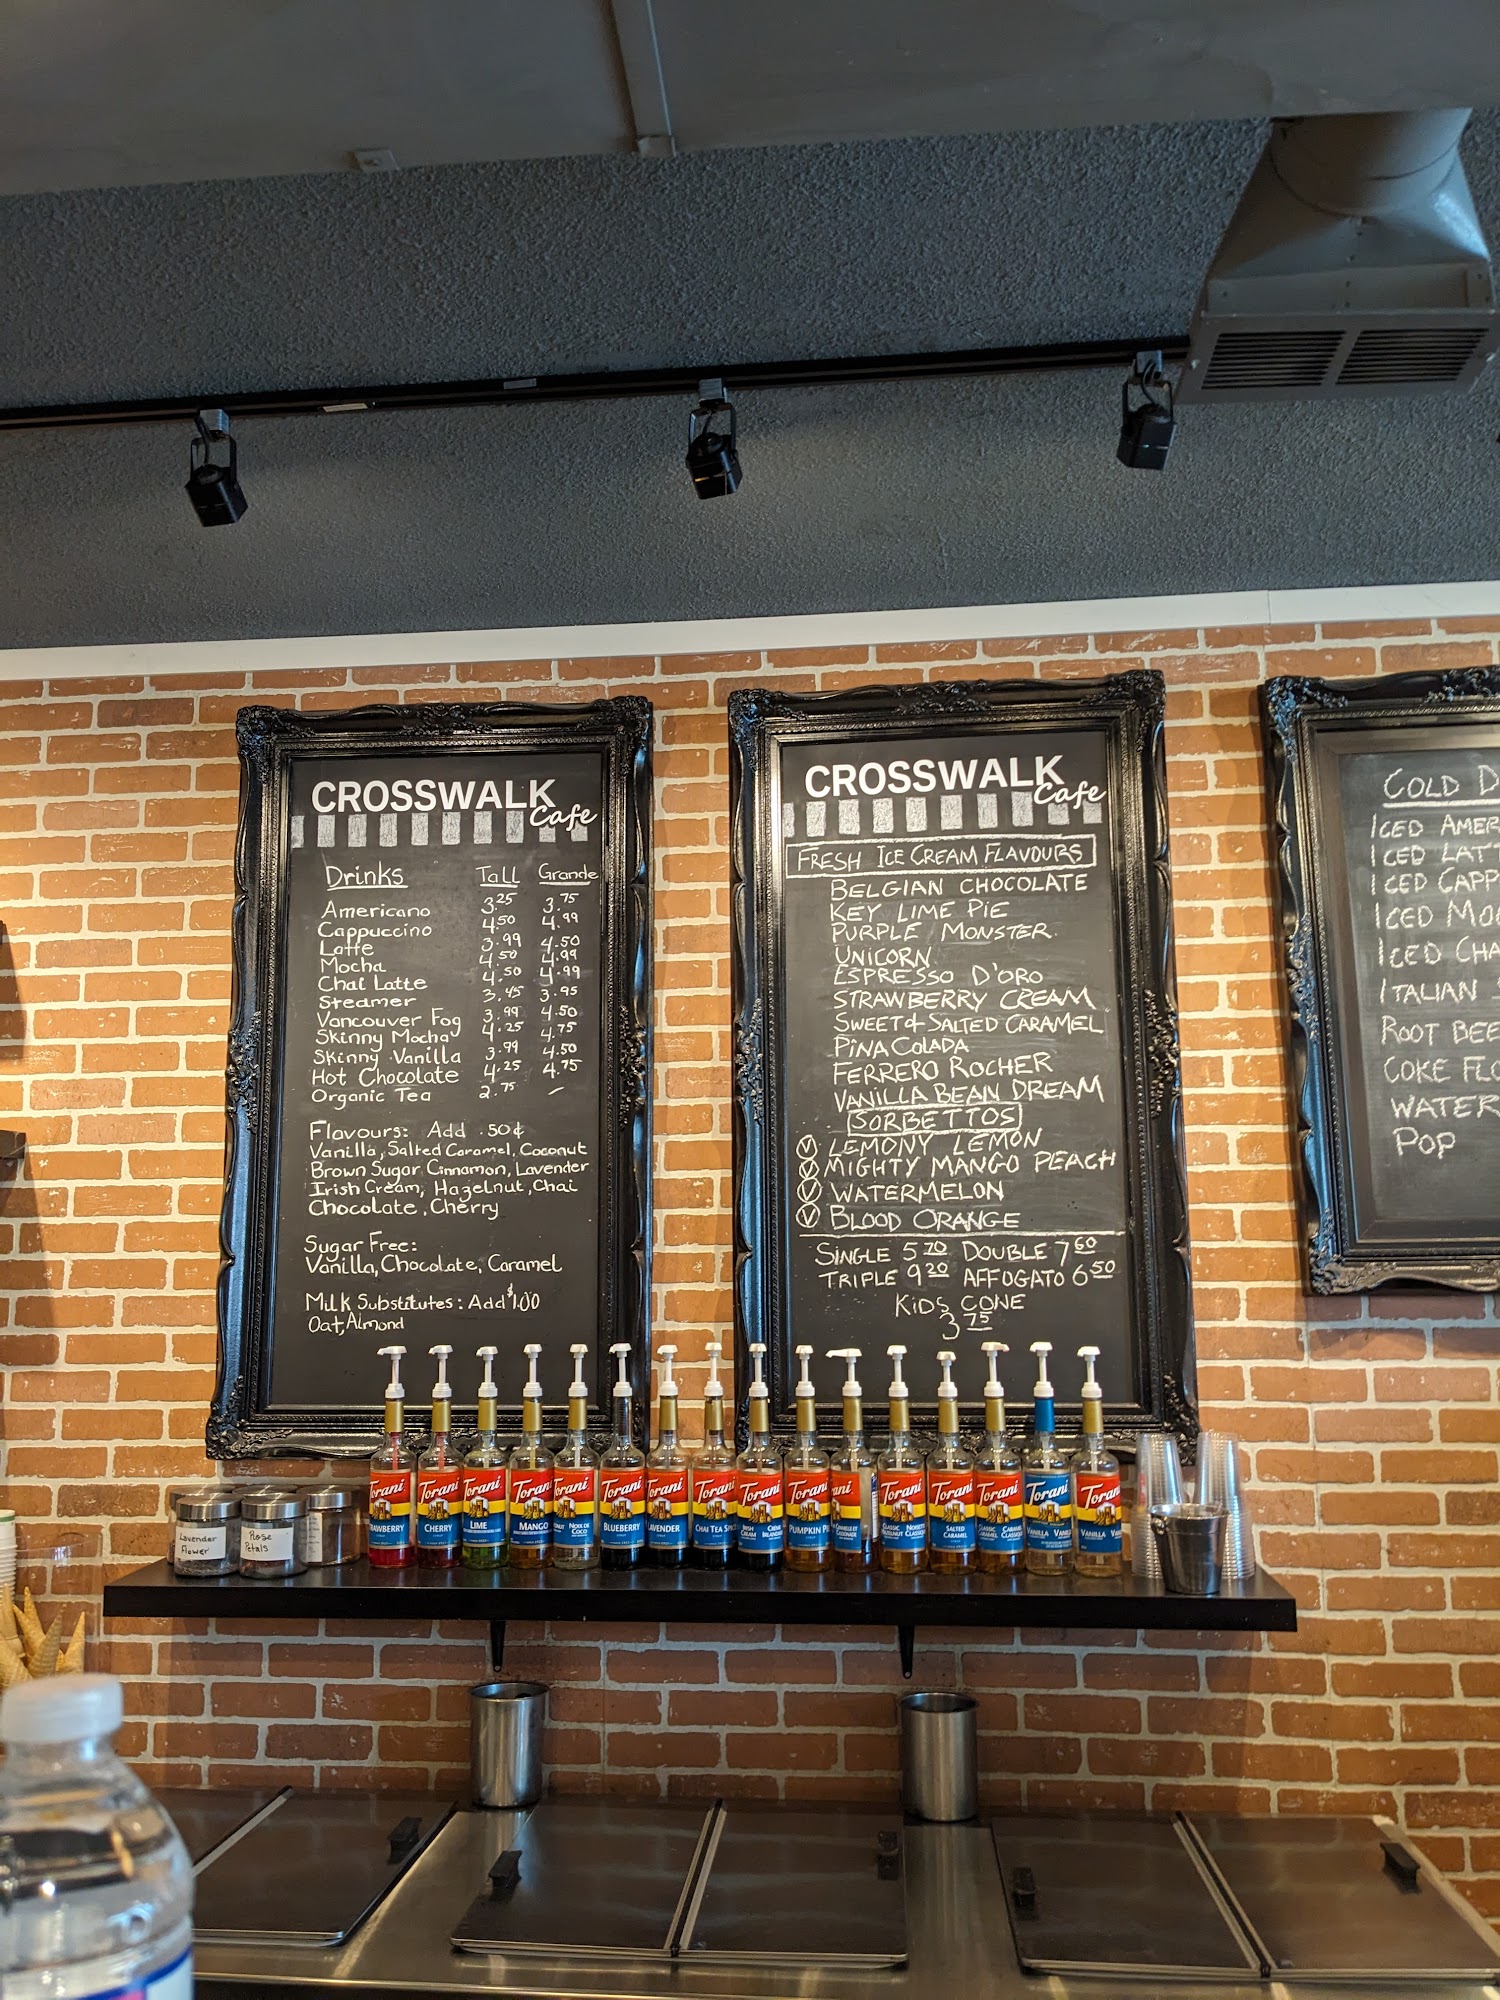 CROSSWALK
Cafe
Drinks Tall Grande
Americano 3.25 3.75
Cappuccino 4.50 4.99
Latte 3.99 4.50
Mocha 4.50 4.99
Chai Latte 4.50 4.99
Steamer 3.45 3.95
Vancouver Fog 3.99 4.50
Skinny Mocha 4.25 4.75
Skinny Vanilla 3.99 4.50
Hot Chocolate 4.25 4.75
Organic Tea 2.75 –
Flavours: Add .50¢
Vanilla, Salted Caramel, Coconut
Brown Sugar Cinnamon, Lavender
Irish Cream, Hazelnut, Chai
Chocolate, Cherry
Sugar Free:
Vanilla, Chocolate, Caramel
Milk Substitutes: Add $1.00
Oat, Almond
CROSSWALK
Cafe
FRESH ICE CREAM FLAVOURS
BELGIAN CHOCOLATE
KEY LIME PIE
PURPLE MONSTER
UNICORN
ESPRESSO D'ORO
STRAWBERRY CREAM
SWEET & SALTED CARAMEL
PINA COLADA
FERRERO ROCHER
VANILLA BEAN DREAM
SORBETTOS
V LEMONY LEMON
V MIGHTY MANGO PEACH
V WATERMELON
V BLOOD ORANGE
SINGLE 5.70 DOUBLE 7.60
TRIPLE 9.20 AFFOGATO 6.50
KIDS CONE
3.75
COLD D
ICED AMER
ICED LATT
ICED CAPP
ICED MOC
ICED CHA
ITALIAN
ROOT BEE
COKE FLO
WATER
POP
Lavender
Flower
Rose
Petals
Torani Torani Torani Torani Torani Torani Torani Torani Torani Torani Torani Torani Torani Torani Torani
CHERRY
LIME
MANGO
NOIX DE
COCO
BLUEBERRY
LAVENDER
CHAI TEA SPICE
IRISH
CREAM
PUMPKIN PI
CLASSIC
HAZELNUT
NOISETTE
CLASSIQUE
SALTED
CARAMEL
CLASSIC
CARAMEL
VANILLA
VANILLA